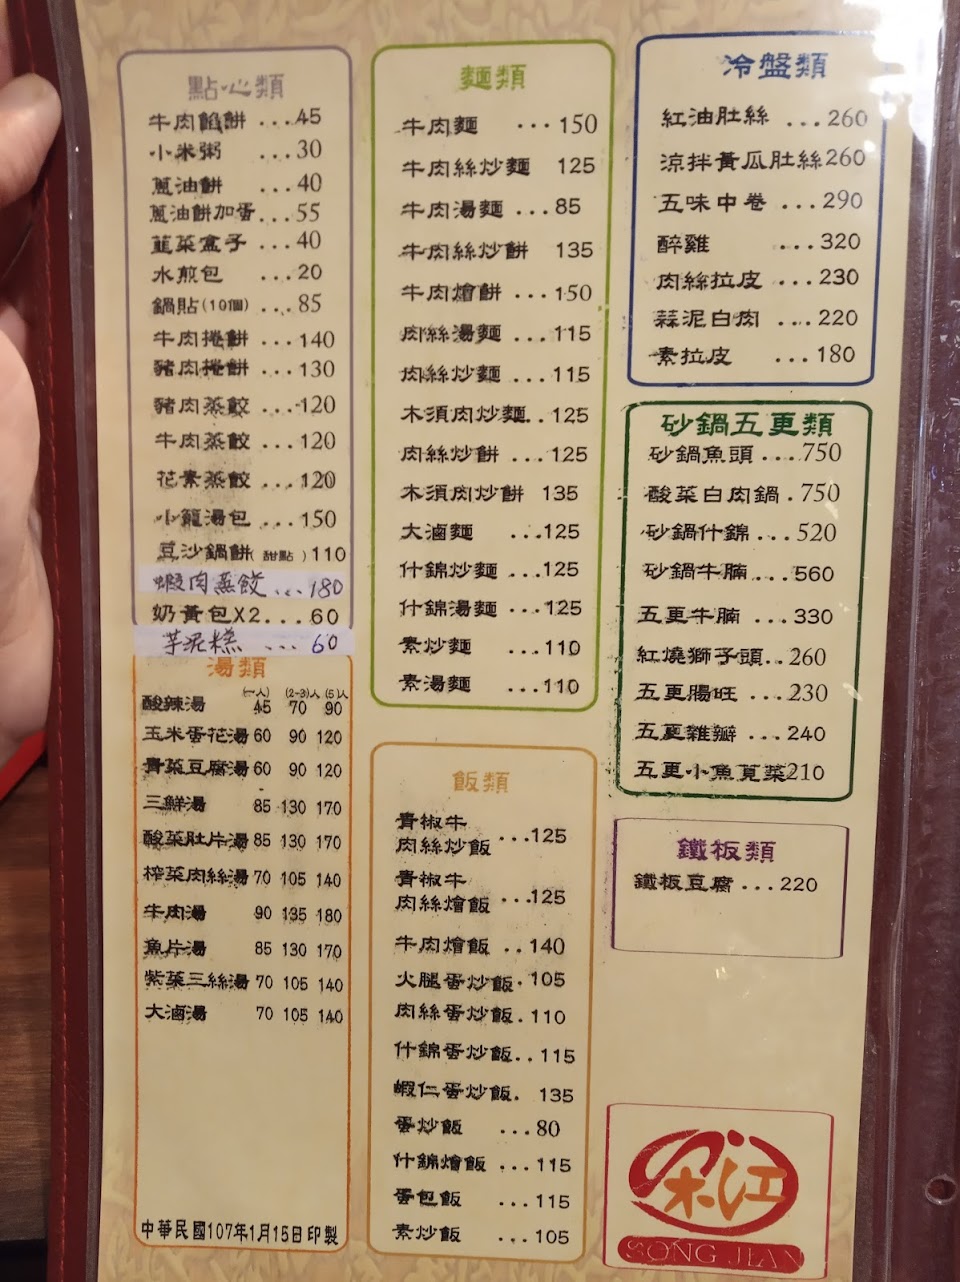 點心類
牛肉餡餅...45
小米粥...30
蔥油餅...40
蔥油餅加蛋...55
韮菜盒子...40
水煎包...20
鍋貼(10個)...85
牛肉捲餅...140
豬肉捲餅...130
豬肉蒸餃...120
牛肉蒸餃...120
花素蒸餃...120
小籠湯包...150
豆沙鍋餅(甜點)110
蝦肉蒸餃...180
奶黃包X2...60
芋泥糕...60
湯類
(一人) (2-3)人 (5)人
酸辣湯 45 70 90
玉米蛋花湯 60 90 120
青菜豆腐湯 60 90 120
三鮮湯 85 130 170
酸菜肚片湯 85 130 170
榨菜肉絲湯 70 105 140
牛肉湯 90 135 180
魚片湯 85 130 170
紫菜三絲湯 70 105 140
大滷湯 70 105 140
中華民國107年1月15日印製
麵類
牛肉麵...150
牛肉絲炒麵 125
牛肉湯麵...85
牛肉絲炒餅 135
牛肉燴餅...150
肉絲湯麵...115
肉絲炒麵...115
木須肉炒麵..125
肉絲炒餅...125
木須肉炒餅 135
大滷麵...125
什錦炒麵...125
什錦湯麵...125
素炒麵...110
素湯麵...110
飯類
青椒牛
肉絲炒飯...125
青椒牛
肉絲燴飯...125
牛肉燴飯..140
火腿蛋炒飯.105
肉絲蛋炒飯.110
什錦蛋炒飯..115
蝦仁蛋炒飯.135
蛋炒飯...80
什錦燴飯...115
蛋包飯...115
素炒飯...105
冷盤類
紅油肚絲...260
涼拌黃瓜肚絲260
五味中卷...290
醉雞...320
肉絲拉皮...230
蒜泥白肉...220
素拉皮...180
砂鍋五更類
砂鍋魚頭...750
酸菜白肉鍋.750
砂鍋什錦...520
砂鍋牛腩...560
五更牛腩...330
紅燒獅子頭..260
五更腸旺...230
五更雜瓣...240
五更小魚莧菜210
鐵板類
鐵板豆腐...220
松江
SONG JIAN